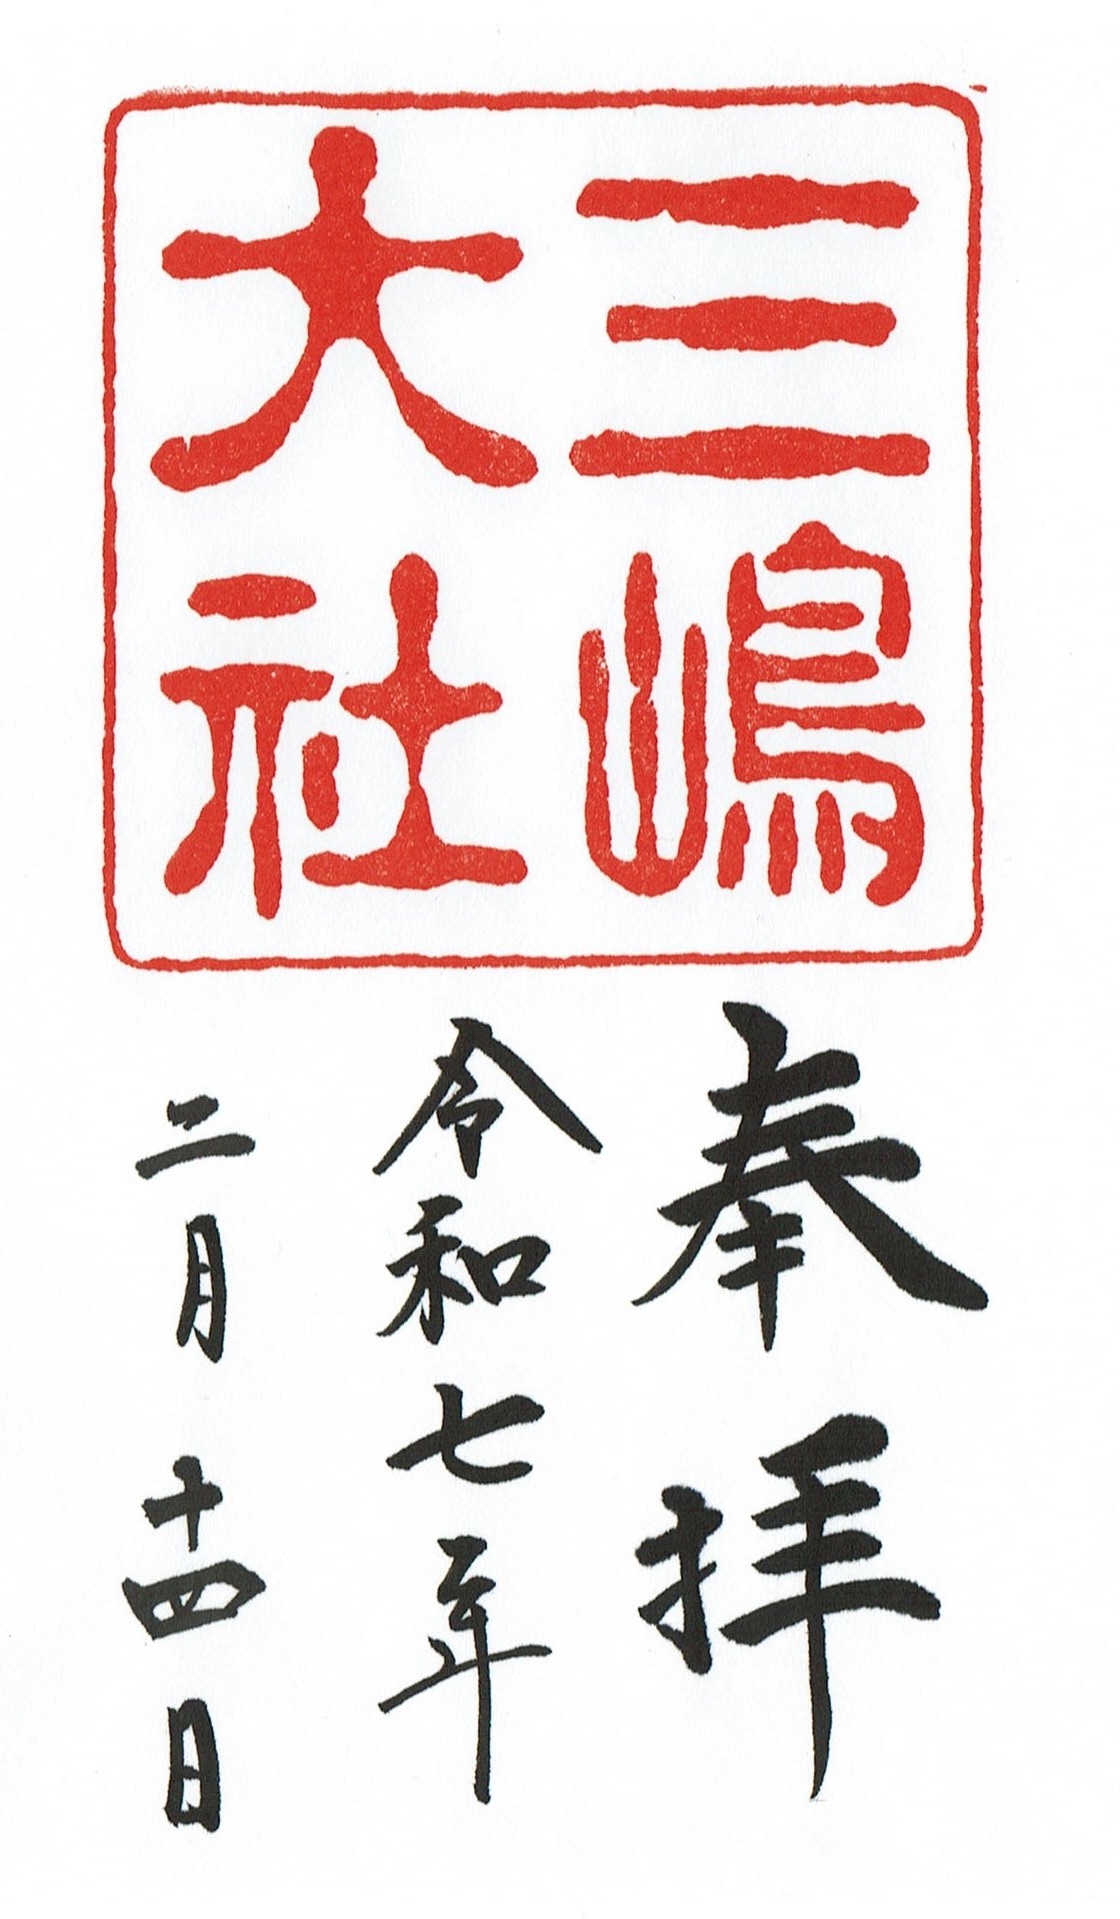 三嶋
大社
奉拝
令和七年
二月十四日